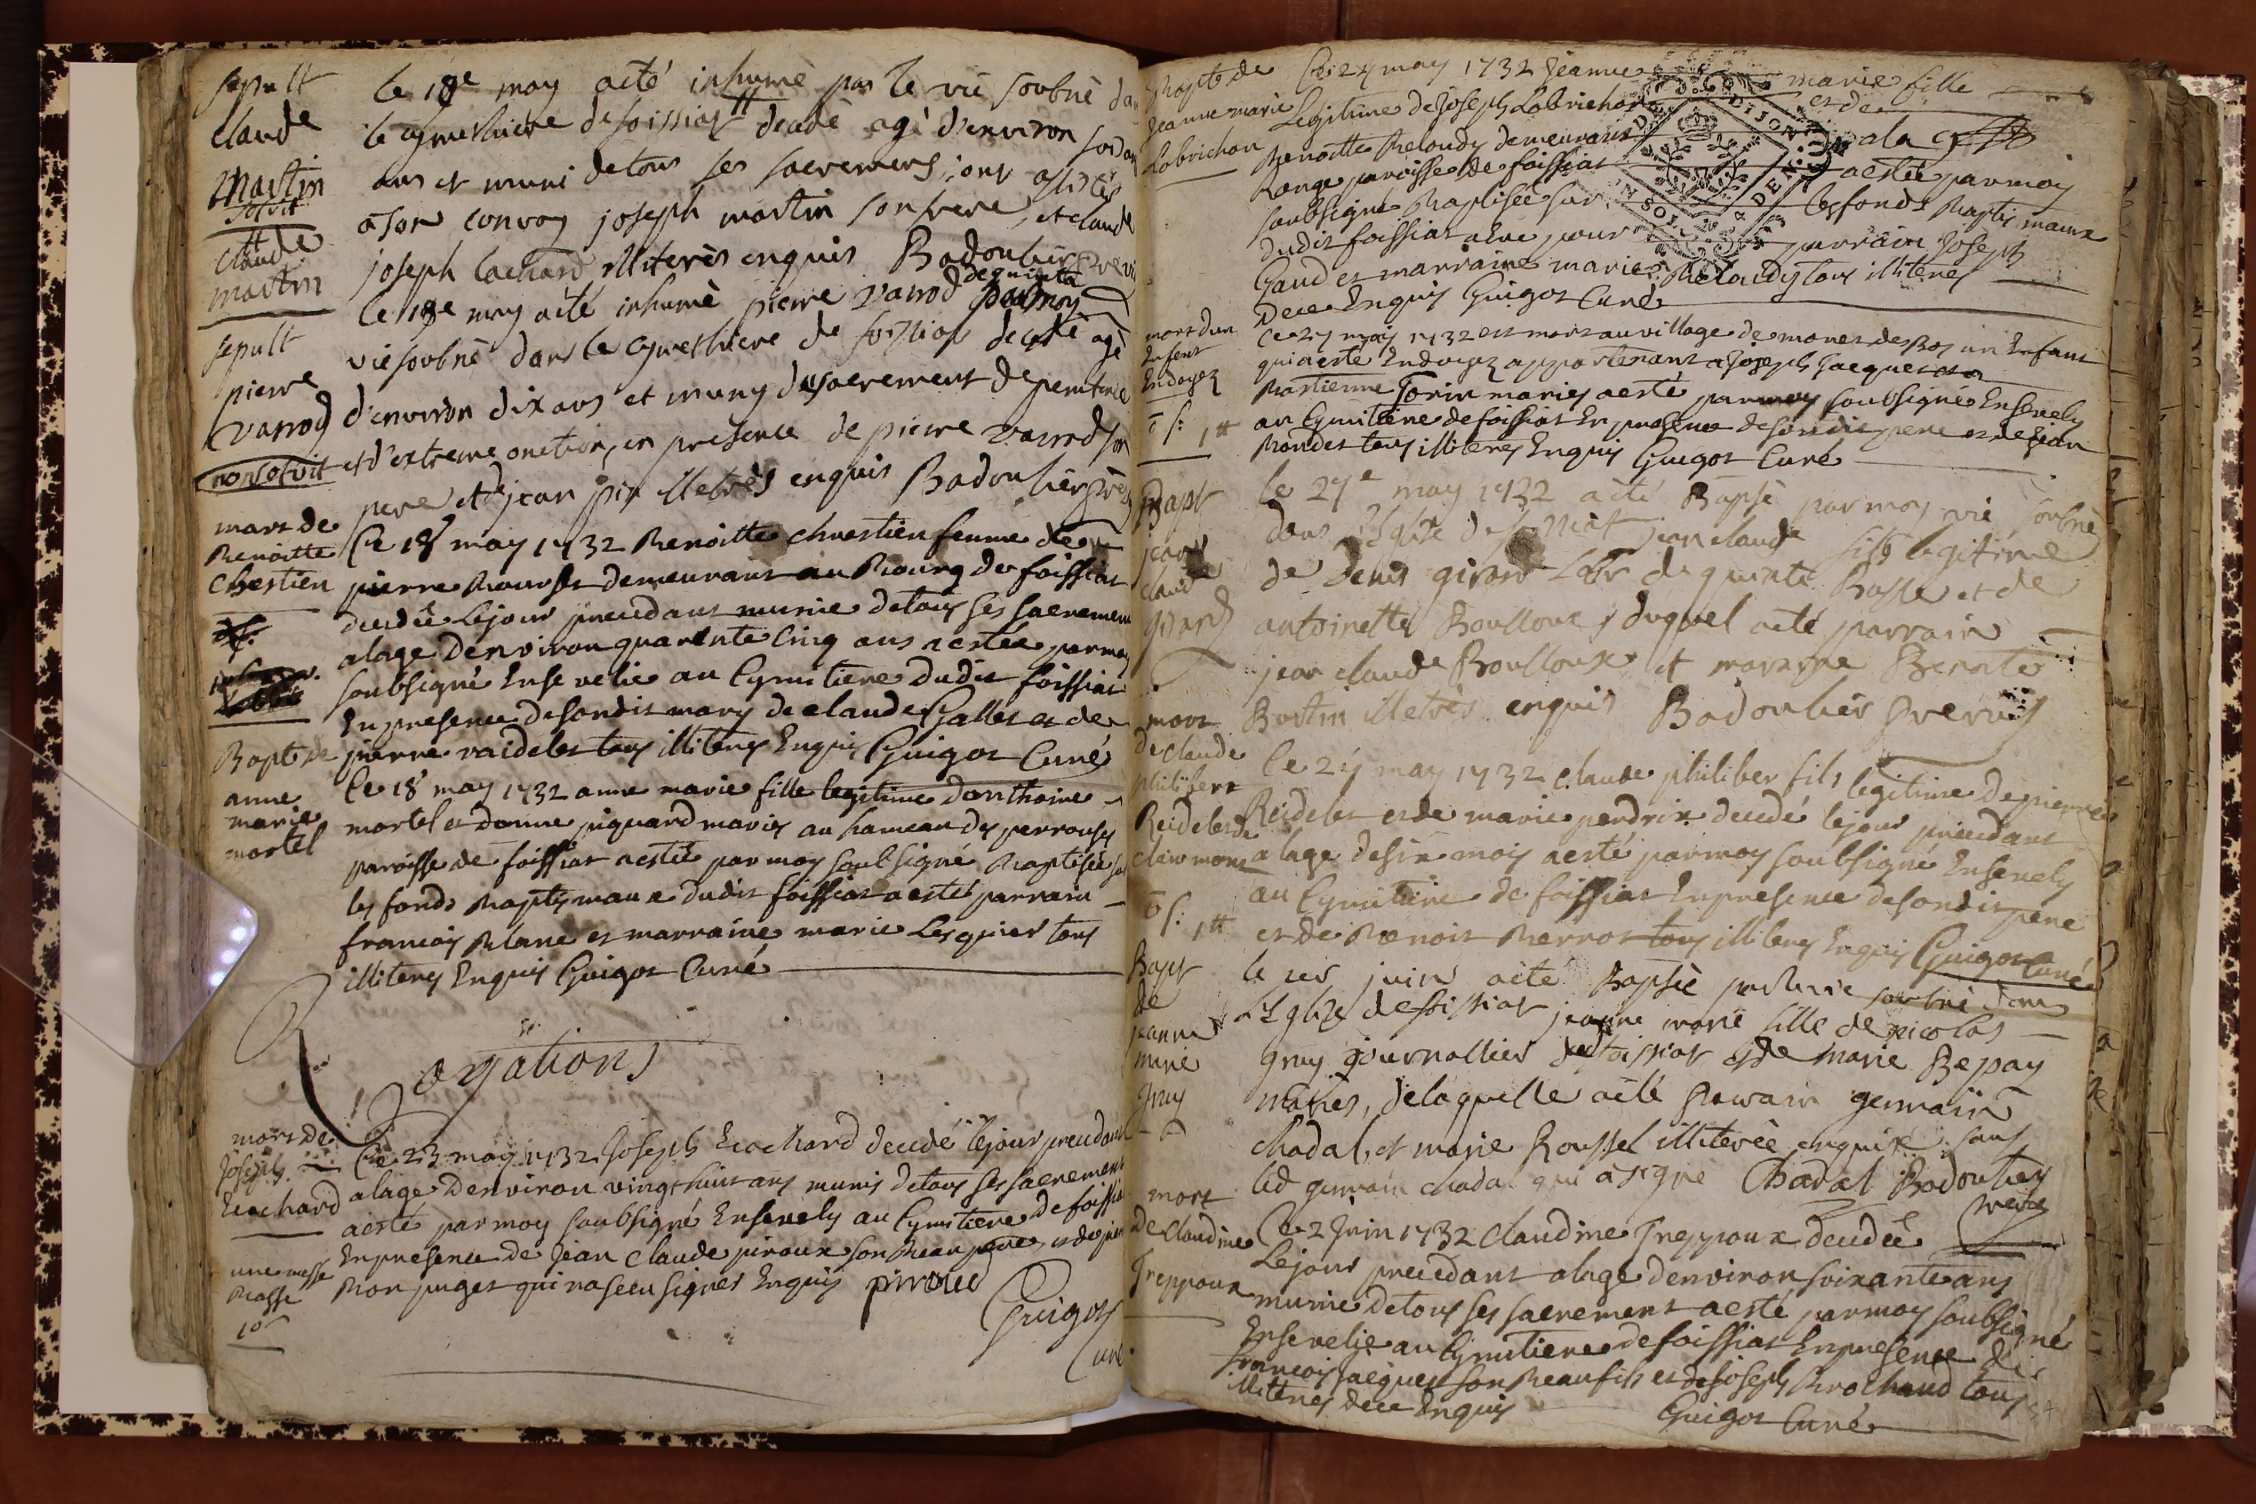 sepult
claude
martin
solvit
le 18e may aété inhumè par le vic soubnè
le cymethiere de foissiat decedè agè d'environ
ans et muni de tous ses sacremens, ont assistés
a son convoy joseph martin son frere, et claude
joseph lachard illiterès enquis Badoulier
claude
martin
sepult
pierre
varrod
non solvit
le 18e may aété inhumè pierre varrod de quinta par moy
vic soubnè dans le cymethiere de foissiat decedè agè
d'environ dix ans et muny du sacrement de penitence
et d'extreme onction, en presence de pierre varrod son
pere et de jean pin illetrès enquis Badoulier
mort de
Benoitte
Chrestien
Ce 18 may 1732 Benoitte Chrestien femme de
pierre demeurant au Bourg de foissiat
decedée le jour precedant munie de tous ses sacremens
a lage denviron quarente Cinq ans aestée par moy
soubsigné Ensevelie au Cymitiere dudit foissiat
En presence de sondit mary de claude Gallet et de
pierre raidelet tous illiterés Enquis Guigot Curé
Bapt de
anne
marie
mortel
Ce 18 may 1732 anne marie fille legitime danthoine
mortel et danne piquard mariés au hameau des perrouses
paroisse de foissiat aestée par moy soubsigné Baptisée sur
les fonds Baptismaux dudit foissiat aesté parrain
francois Blanc et marraine marie Lesquier tous
illiterés Enquis Guigot Curé
Rogations
mort de
Joseph
Ecochard
Ce 23 may 1732 Joseph Ecochard decedé le jour precedant
a lage denviron vingt huit ans munis de tous ses sacremens
aesté par moy soubsigné Ensevely au Cymitiere de foissiat
En presence de Jean Claude piroux son Beau pere, et de pierre
Mon puget qui na sceu signer Enquis pirroud
une messe
Basse
10s
Guigot
Curé
Bapt de
Jeanne marie
Lobrichon
Ce 24 may 1732 Jeanne marie fille
Legitime de Joseph Lobrichon et de
Benoitte Beloudy demeurants a la
Range paroisse de foissiat aestée par moy
soubsigné Baptisée sur les fonds Baptismaux
dudit foissiat aeue pour parrain Joseph
Gaud et marraine marie Beloudy tous illiterés
dece Enquis Guigot Curé
mort dun
Enfent
Endoyez
1tt
Ce 27 may 1732 est mort au village de monet des Bos un Enfant
qui aesté Endoyez appartenant a Joseph Jacquet et a
Bastienne Torin mariés aesté par moy soubsigné Ensevely
au Cymitiere de foissiat En presence de sondit pere et de Jean
Bondet tous illiterés Enquis Guigot Curé
Bapt
jean
claude
girard
le 27e may 1732 aété Bapsè par moy vic soubnè
dans l'Eglise de foissiat jean claude fils legitime
de Denis girard labr de quinte Basse et de
antoinette Boulloux, duquel aété parrain
jean claude Boulloux et maraine Benoite
Burtin illetrès enquis Badoulier
mort
de claude
philibert
Reidelet de
clairmont
1tt
Ce 27 may 1732 claude philiber fils legitime de pierre
Reidelet et de marie perdrix decedé le jour precedant
a lage de six mois aesté par moy soubsigné Ensevely
au Cymitiere de foissiat En presence de sondit pere
et de Benoit Berrot tous illiterés Enquis Guigot Curé
Bapt
de
jeanne
marie
gruy
le 1er juin aété Bapsèe par le vic soubnè dans
L'Eglize de foissiat jeanne marie fille de nicolas
gruy journallier de foissiat et de marie Bepay
mariés, de laquelle aété parrain germain
chadal, et marie Roussel illiterèe enquise sans
led germain chadal qui a signe Chadal Badoulier
mort
de claudine
Treppoux
Ce 2 Juin 1732 Claudine Treppoux decedée
Lejour precedant a lage denviron soixante ans
munie de tous ses sacrement aesté par moy soubsigné
Ensevelie au Cymitiere de foissiat En presence de
francois Jacquet son Beau fils et de Joseph Brochand tous
illiterés dece Enquis Guigot Curé